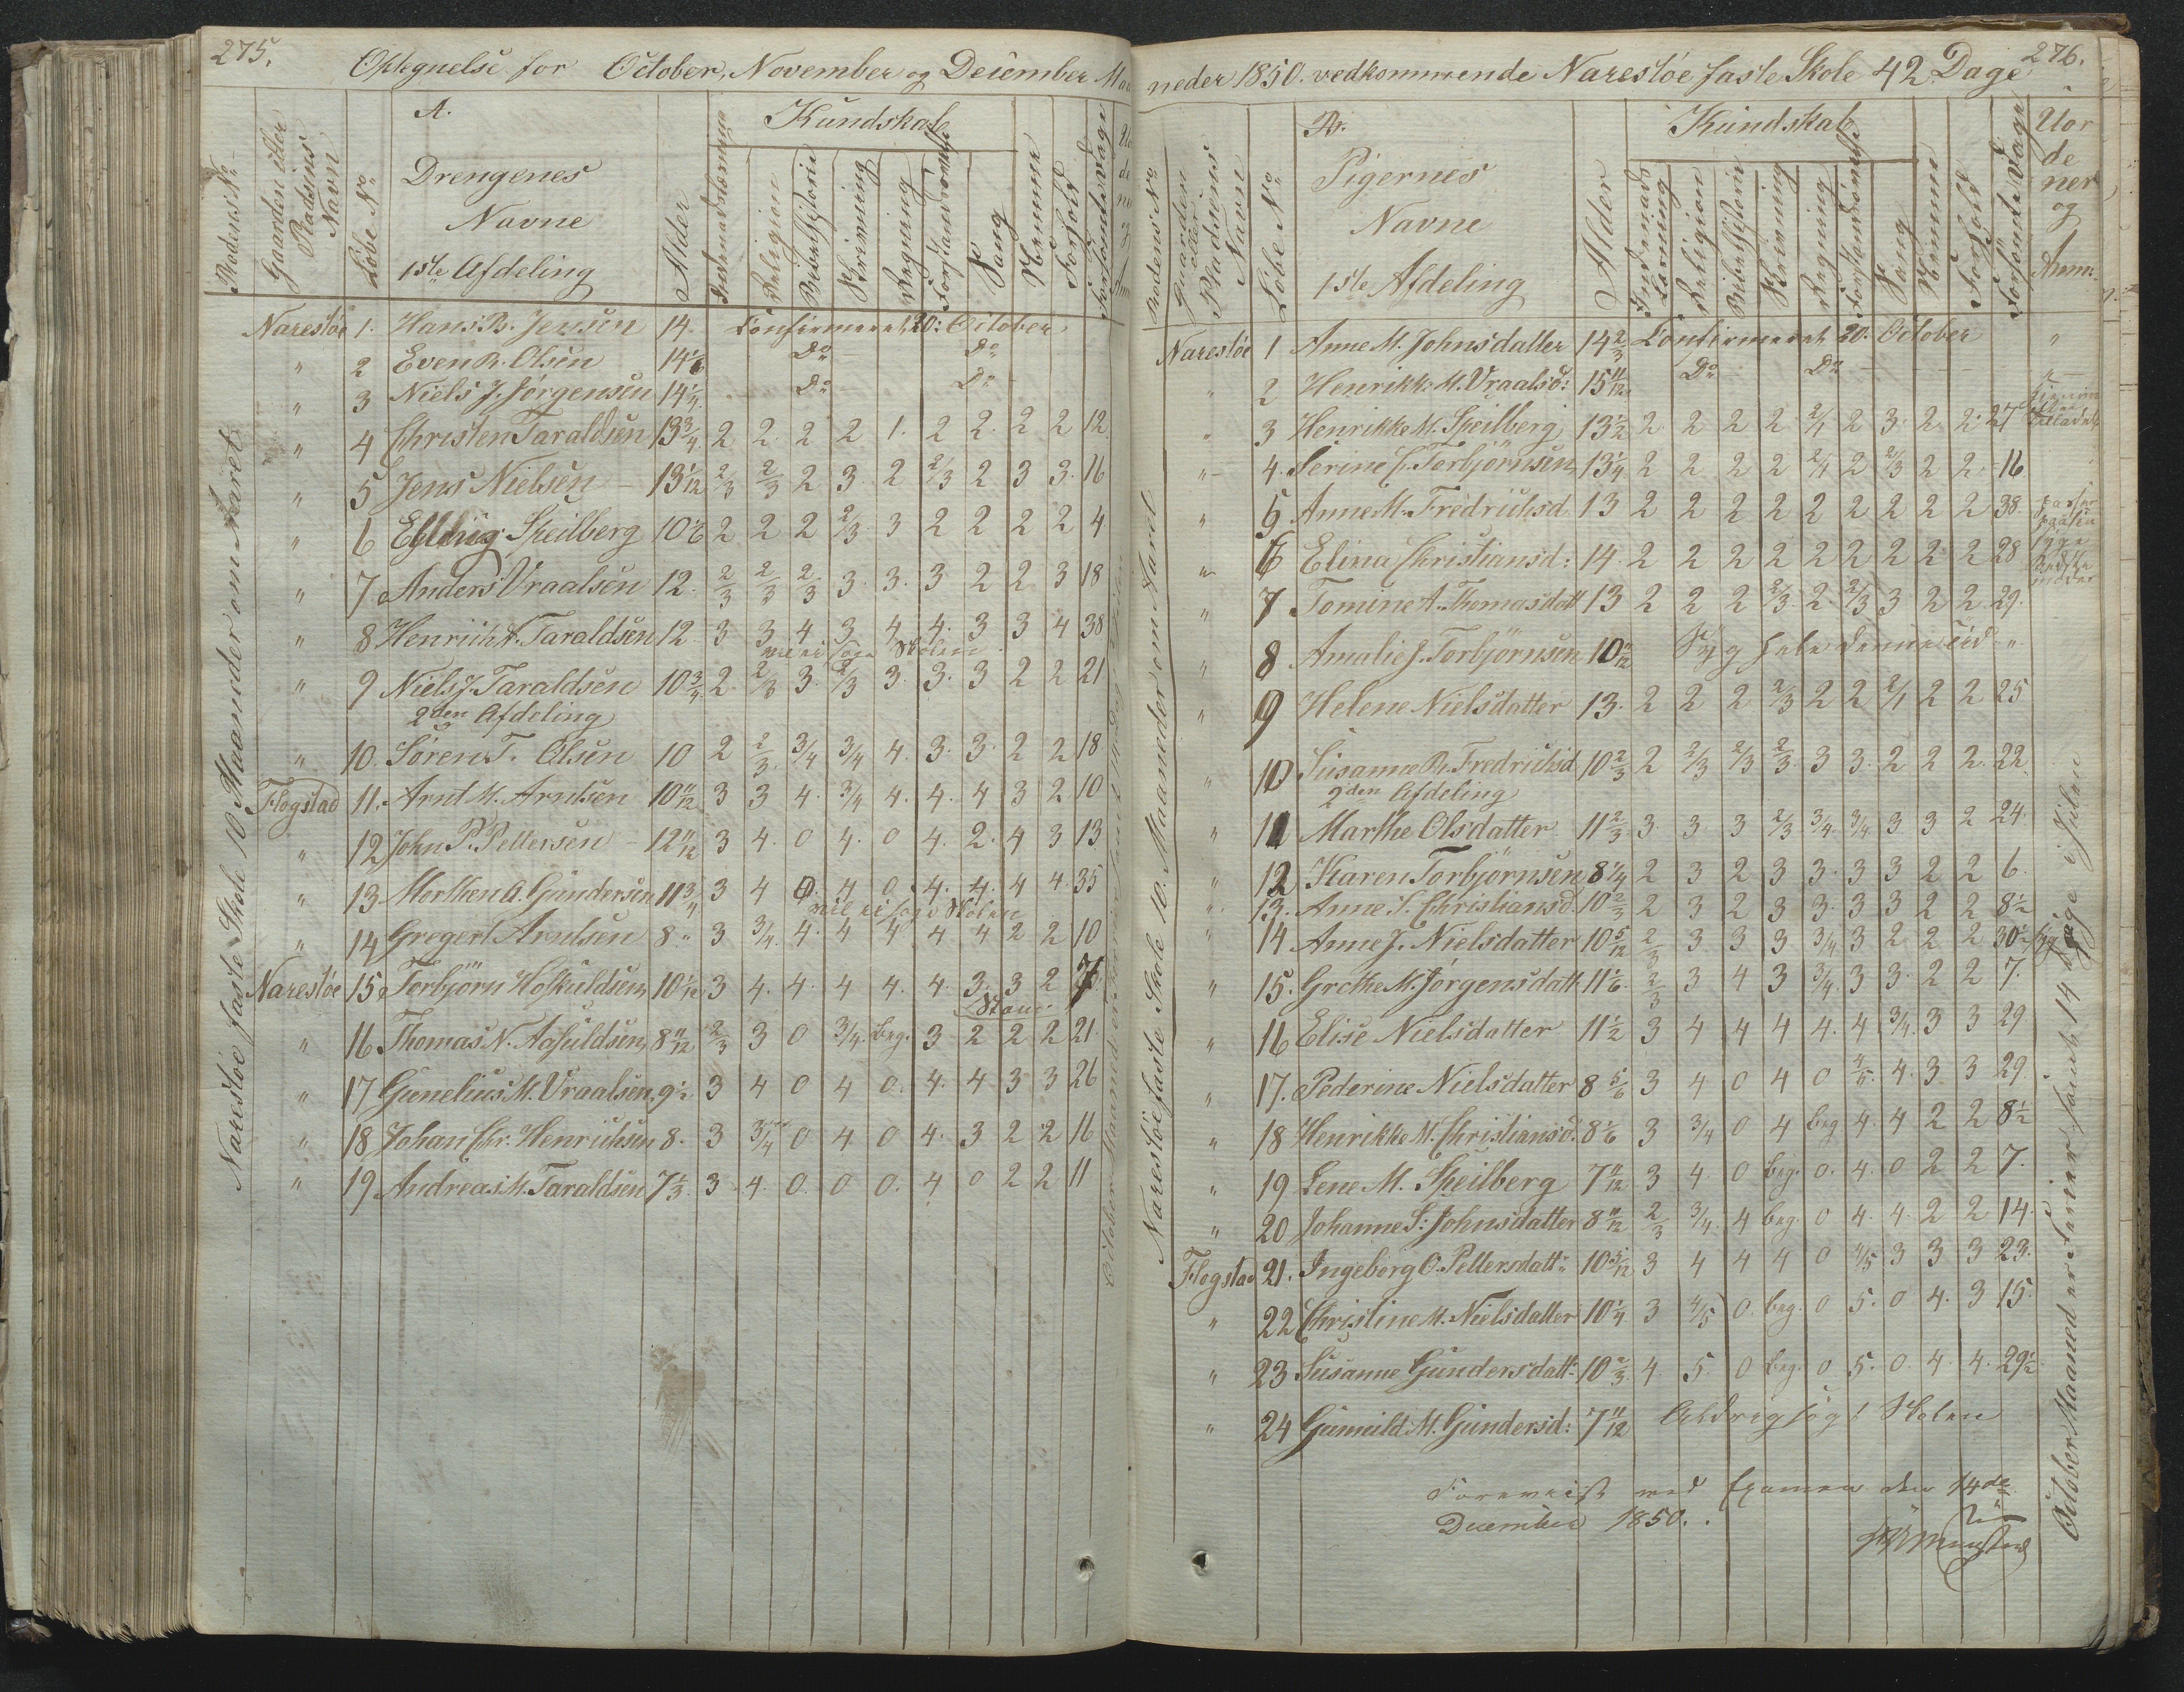 275.
Optegnelse for October, November og December Maa
Rodens No
Gaarden eller Pladsens Navn
Løbe No
A.
Drengenes
Navne
1ste Afdeling
Alder
Kundskab
Indenadslæsning
Religion
Bibelhistorie
Skrivning
Regning
Forstandsøvelse
Sang
Nemme
Forhold
Forsømte Dage
Narestöe faste Skole 10 Maaneder om Aaret
Narestöe 1. Hans B. Jensen 14. Confirmeret 20: October
" 2 Even R. Olsen 14 1/6 Do Do
" 3 Niels J. Jörgensen 14 1/4 Do Do
" 4 Christen Taraldsen 13 3/4 2 2 2 2 1. 2 2. 2 2 12
" 5 Jens Nielsen 13 1/12 2/3 2/3 2 3. 2 2/3 2 3 3. 16
" 6 Speilberg 10 1/6 2 2 2 2/3 3 2 2 2 2 4
" 7 Anders Vraalsen 12. 2/3 2/3 2/3 3. 3. 3 2 2 3 18
" 8 Henrich A. Taraldsen 12 3 3 4 3 4 4. 3 3 4 38
vil ei søge Skolen
" 9 Niels J. Taraldsen 10 3/4 2 2/3 3. 2/3 3. 3. 3 2 2 21
2den Afdeling
" 10. Sören T. Olsen 10 2 2/3 3/4 3/4 4. 3. 3. 2 2 18
Flogstad 11. Arnt M. Arntsen 10 11/12 3 3 4. 3/4 4. 4. 4 3 2 10
" 12 John P. Pettersen 12 11/12 3 4. 0 4. 0 4. 2. 4 3 13
" 13 Morthen A. Gundersen 11 3/4 3 4 0. 4 0. 4. 4. 4 4. 35
vil ei søge Skolen
" 14 Gregert Arntsen 8 " 3 3/4. 4. 4 4. 4 4 2 2 10
Narestöe 15 Torbjörn 10 1/12 3 4. 4. 4 4. 4. 3. 3 2
" 16 Thomas N. 8 11/12 2/3 3 0 3/4. beg. 3 2 2 2 21
" 17 Gunelius M. Vraalsen 9 1/2 3 4 0 4 0. 4. 4 3 3 26
" 18 Johan Chr. Henrichsen 8. 3 3/4 0 4 0 4. 3 2 2 16
" 19 Andreas M. Taraldsen 7 1/3. 3 4. 0. 0 0. 4 0 2 2 11
276.
neder 1850. vedkommende Narestöe faste Skole 42 Dage
Rodens No
Gaarden eller Pladsens Navn
Løbe No
B.
Pigernes
Navne
1ste Afdeling
Alder
Kundskab
Indenads Læsning
Religion
Bibelhistorie
Skrivning
Regning
Forstandsøvelse
Sang
Nemme
Forhold
Forsømte Dage
Uor
de
ner
og
Anm.
Narestöe faste Skole 10. Maaneder om Aaret
Narestöe 1 Anne M. Johnsdatter 14 2/3 Confirmeret 20. October "
" 2 Henrikke M. Vraalsd: 15 11/12 Do Do
" 3 Henrikke M. Speilberg 13 1/2 2 2 2 2 2/1 2 3. 2 2. 27
" 4. Serine C. Torbjörnsen 13 1/4 2 2 2 2 2/1 2 2/3 2 2 16
" 5 Anne M. Fredrichsd 13 2 2 2 2 2 2 2 2 2 38
" 6 Elina Christiansd: 14. 2 2 2 2 2 2 2 2 2 28
" 7 Tomine A. Thomasdatt 13 2 2 2 2/3 2. 2/3 3 2 2. 29.
" 8 Amalie J. Torbjörnsen 10 11/12 Syg hele denne Tid "
" 9 Helene Nielsdatter 13. 2 2 2 2/3 2 2 2/1 2 2 25
" 10 Susanne R. Fredrichsd 10 2/3 2 2/3 2/3 2/3 3 3. 2 2 2. 22
2den Afdeling
" 11 Marthe Olsdatter 11 2/3 3. 3. 3 2/3 3/4. 3/4 3 3 2 24.
" 12 Karen Torbjörnsen 8 1/4 2 3 2 3 3. 3 3 2 2 6.
" 13. Anne S. Christiansd. 10 2/3 2 3 2 3 3. 3 3 2 2 8 1/2
" 14 Anne J. Nielsdatter 10 5/12 2/3 3 3 3 3/4 3 2 2 2 30 1/2 syg
" 15. Grethe M. Jörgensdatt 11 1/6. 2/3 3 4 3 3/4. 3 3. 2 2 7.
" 16 Elise Nielsdatter 11 1/2 3 4 4 4 4. 4 3/4. 3 3 29
" 17. Pederine Nielsdatter 8 5/6 3 4 0 4 0 4/5. 4. 3 3 29.
" 18 Henrikke M. Christiansd. 8 1/6 3 3/4 0 4 beg 4. 4 2 2 8 1/2
" 19 Lene M. Speilberg 7 11/12 3 4. 0 beg. 0. 4. 0 2 2 7.
" 20 Johanne S: Johnsdatter 8 11/12 2/3 3/4. 4 beg. 0 4. 4. 2 2 14.
Flogstad 21. Ingeborg O. Pettersdatt: 10 5/12 3 4 4 4 0 4/5 3 3 3 23.
" 22 Christine M. Nielsdatter 10 1/4 3 4/5 0. beg. 0 5. 0 4. 3 15.
" 23 Susanne Gundersdatt: 10 2/3. 4. 5. 0 beg. 0 5. 0. 4. 4. 29 1/2
" 24 Gunnild M. Gundersd: 7 11/12 Aldrig søgt Skolen
October Maaned er Ferier samt 14 Dage i Julen
Foreviist ved Examen den 14de
December 1850.